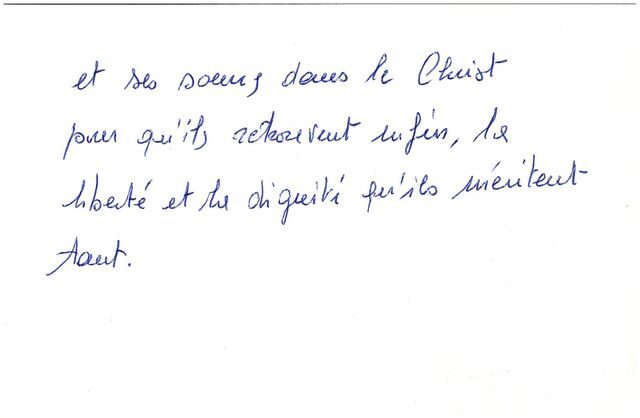 et ses soeurs dans le Christ
pour qu'ils retrouvent enfin, la
liberté et la dignité qu'ils méritent
tant.